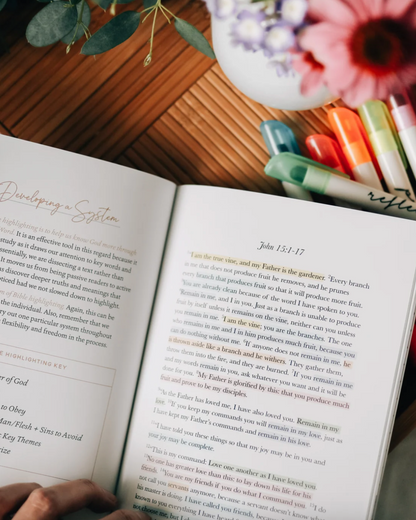 Developing a System
highlighting is to help us know God more through
Word. It is an effective tool in this regard because it
study as it draws our attention to key words and
essentially, we are dissecting a text rather than
It moves us from being passive readers to active
us discover deeper truths and meanings that
missed had we not slowed down to highlight.
of Bible highlighting. Again, this can be
the individual. Also, remember that we
ry out one particular system throughout
flexibility and freedom in the process.
E HIGHLIGHTING KEY
er of God
to Obey
Man/Flesh + Sins to Avoid
Key Themes
rize
John 15:1-17
"I am the true vine, and my Father is the gardener. Every
in me that does not produce fruit he removes, and he prunes
every branch that produces fruit so that it will produce more fruit.
You are already clean because of the word I have spoken to you.
Remain in me, and I in you. Just as a branch is unable to produce
fruit by itself unless it remains on the vine, neither can you unless
you remain in me. I am the vine; you are the branches. The one
who remains in me and I in him produces much fruit, because you
can do nothing without me. If anyone does not remain in me, he
is thrown aside like a branch and he withers. They gather them,
throw them into the fire, and they are burned. If you remain in me
and my words remain in you, ask whatever you want and it will be
done for you. My Father is glorified by this: that you produce much
fruit and prove to be my disciples.
"As the Father has loved me, I have also loved you. Remain in my
love. If you keep my commands you will remain in my love, just as
I have kept my Father's commands and remain in his love.
"I have told you these things so that my joy may be in you and
your joy may be complete.
"This is my command: Love one another as I have loved you.
No one has greater love than this: to lay down his life for his
friends. You are my friends if you do what I command you. I do
not call you servants anymore, because a servant doesn't know what
his master is doing. I have called you friends, because
known to you everything I have heard
choose me, but I
refle